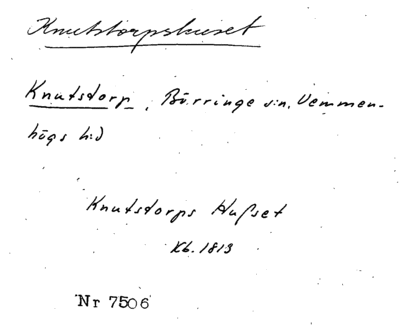 Knutstorpshuset
Knutsdorp, Börringe s:n, Vemmen-
högs h:d
Knutsdorps Hußet
Kb. 1813
Nr 7506